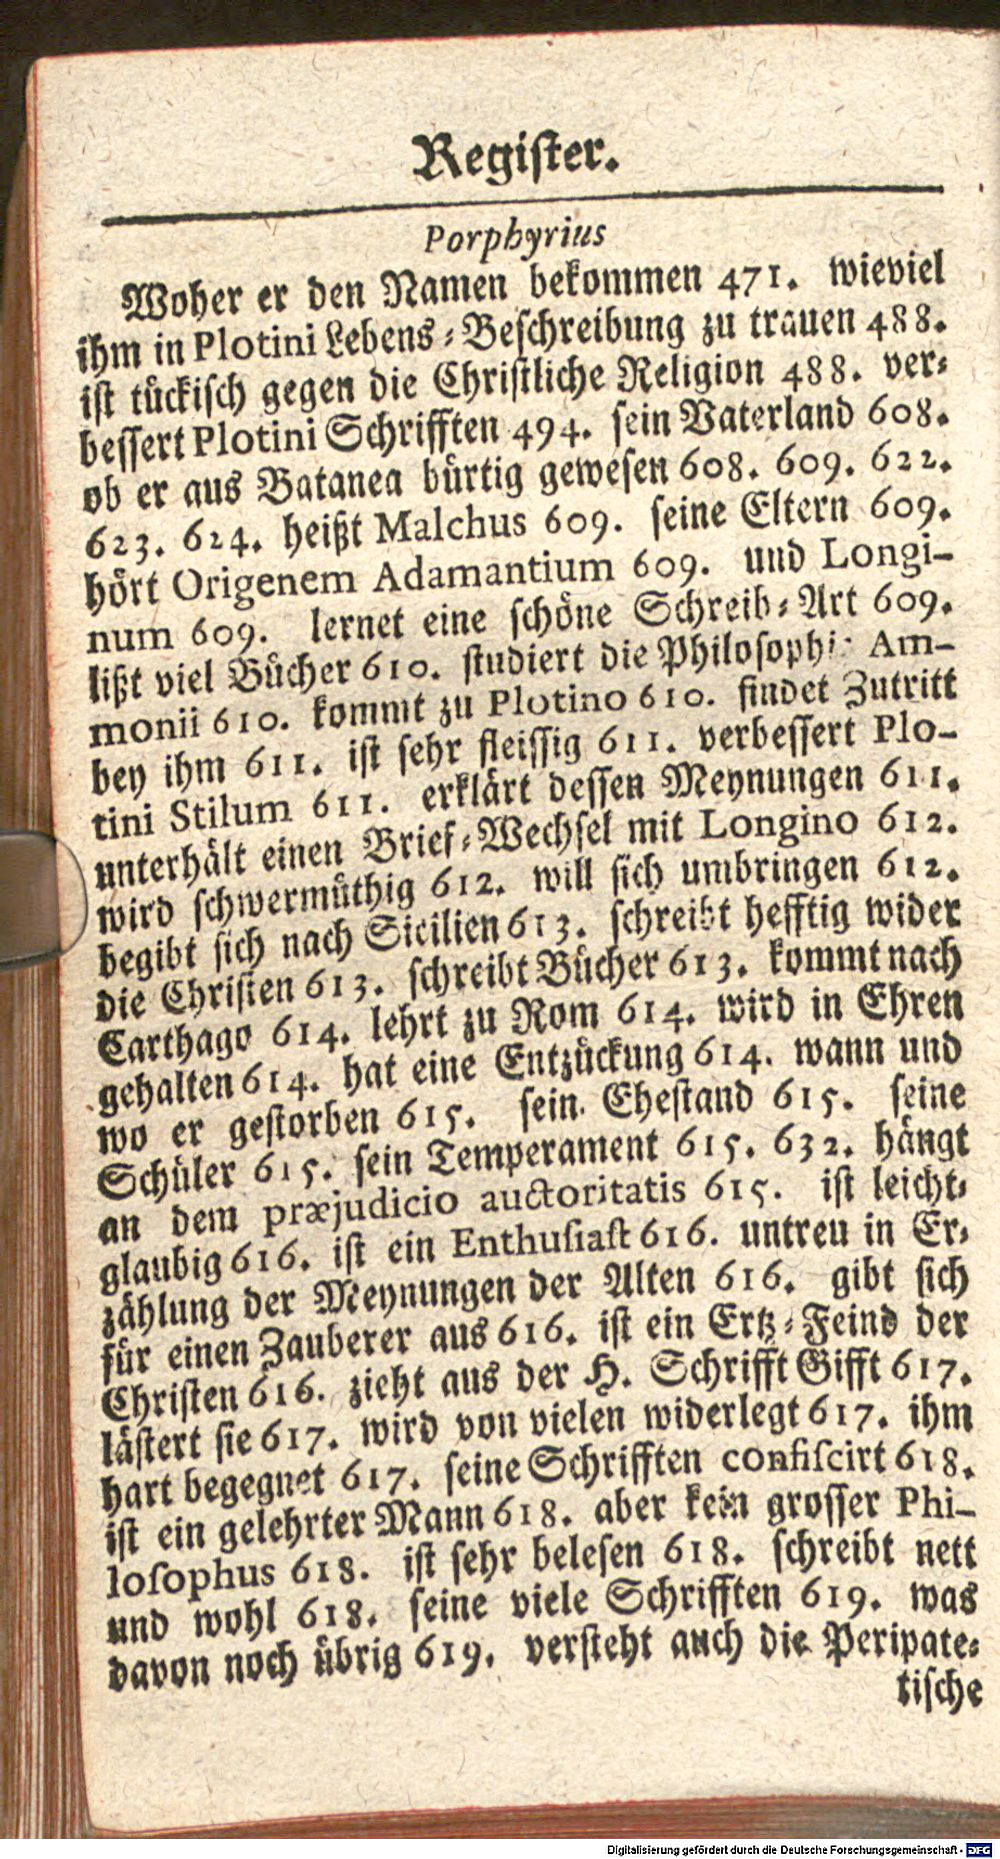 Register.
Porphyrius
Woher er den Namen bekommen 471. wieviel
ihm in Plotini Lebens-Beschreibung zu trauen 488.
ist tückisch gegen die Christliche Religion 488. ver-
bessert Plotini Schrifften 494. sein Vaterland 608.
ob er aus Batanea bürtig gewesen 608. 609. 622.
623. 624. heißt Malchus 609. seine Eltern 609.
hört Origenem Adamantium 609. und Longi-
num 609. lernet eine schöne Schreib-Art 609.
lißt viel Bücher 610. studiert die Philosophi Am-
monii 610. kommt zu Plotino 610. findet Zutritt
bey ihm 611. ist sehr fleissig 611. verbessert Plo-
tini Stilum 611. erklärt dessen Meynungen 611.
unterhält einen Brief-Wechsel mit Longino 612.
wird schwermüthig 612. will sich umbringen 612.
begibt sich nach Sicilien 613. schreibt hefftig wider
die Christen 613. schreibt Bücher 613. kommt nach
Carthago 614. lehrt zu Rom 614. wird in Ehren
gehalten 614. hat eine Entzückung 614. wann und
wo er gestorben 615. sein Ehestand 615. seine
Schüler 615. sein Temperament 615. 632. hängt
an dem præjudicio auctoritatis 615. ist leicht-
glaubig 616. ist ein Enthusiast 616. untreu in Er-
zählung der Meynungen der Alten 616. gibt sich
für einen Zauberer aus 616. ist ein Ertz-Feind der
Christen 616. zieht aus der H. Schrifft Gifft 617.
lästert sie 617. wird von vielen widerlegt 617. ihm
hart begegnet 617. seine Schrifften confiscirt 618.
ist ein gelehrter Mann 618. aber kein grosser Phi-
losophus 618. ist sehr belesen 618. schreibt nett
und wohl 618. seine viele Schrifften 619. was
davon noch übrig 619. versteht auch die Peripate-
tische
Digitalisierung gefördert durch die Deutsche Forschungsgemeinschaft - DFG